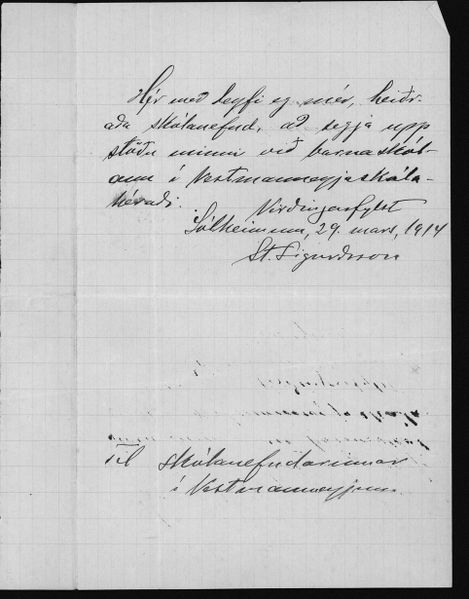 Hjer með leyfi eg mér, heiðr-
aða skólanefnd, að segja upp
stöðu minni við barnaskól-
ann í Vestmannaeyjaskóla-
héraði.
Virðingarfylst
Sólheimum, 29. mars, 1914
St. Sigurðsson
Til skólanefndarinnar
í Vestmannaeyjum